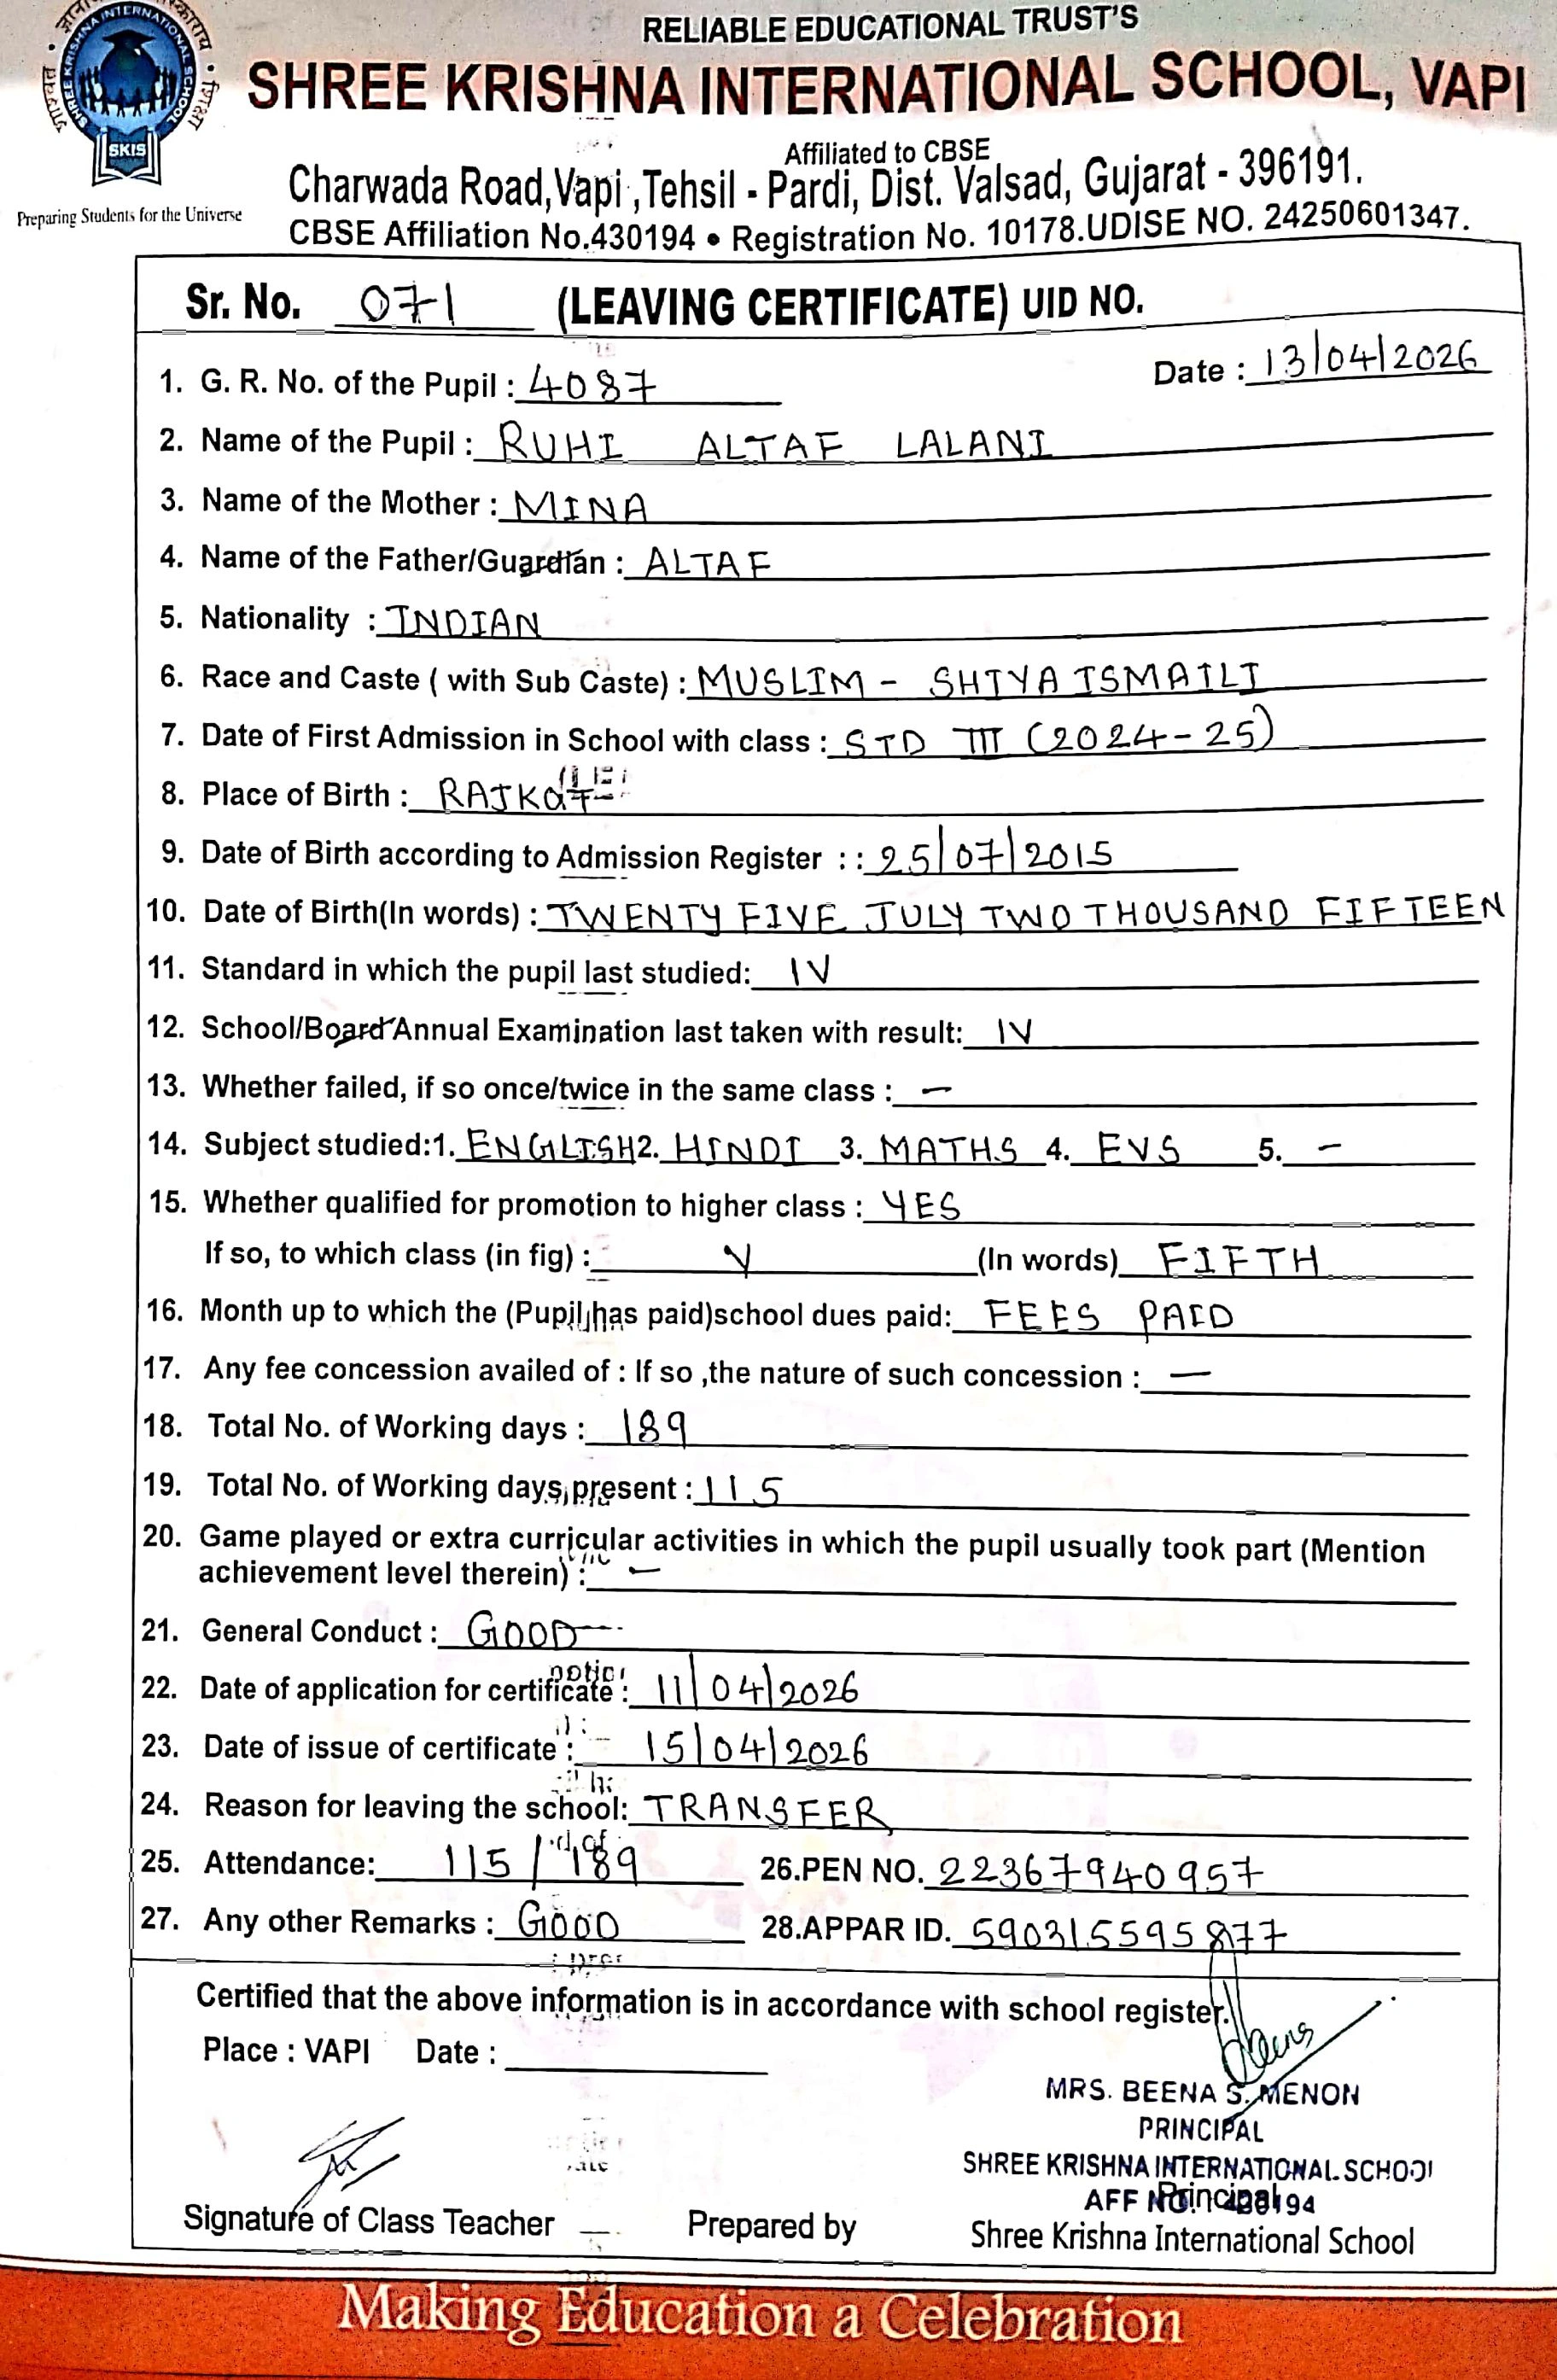 RELIABLE EDUCATIONAL TRUST'S
SHREE KRISHNA INTERNATIONAL SCHOOL, VAPI
SHREE KRISHNA INTERNATIONAL SCHOOL
SKIS
Preparing Students for the Universe
Affiliated to CBSE
Charwada Road,Vapi ,Tehsil - Pardi, Dist. Valsad, Gujarat - 396191.
CBSE Affiliation No.430194 • Registration No. 10178.UDISE NO. 24250601347.
Sr. No. 071 (LEAVING CERTIFICATE) UID NO.
Date : 13/04/2026
1. G. R. No. of the Pupil : 4087
2. Name of the Pupil : RUHI ALTAF LALANI
3. Name of the Mother : MINA
4. Name of the Father/Guardian : ALTAF
5. Nationality : INDIAN
6. Race and Caste ( with Sub Caste) : MUSLIM - SHIYA ISMAILI
7. Date of First Admission in School with class : STD III (2024-25)
8. Place of Birth : RAJKOT
9. Date of Birth according to Admission Register : : 25/07/2015
10. Date of Birth(In words) : TWENTY FIVE JULY TWO THOUSAND FIFTEEN
11. Standard in which the pupil last studied: IV
12. School/Board Annual Examination last taken with result: IV
13. Whether failed, if so once/twice in the same class : —
14. Subject studied:1. ENGLISH 2. HINDI 3. MATHS 4. EVS 5. —
15. Whether qualified for promotion to higher class : YES
If so, to which class (in fig) : V (In words) FIFTH
16. Month up to which the (Pupil has paid)school dues paid: FEES PAID
17. Any fee concession availed of : If so ,the nature of such concession : —
18. Total No. of Working days : 189
19. Total No. of Working days present : 115
20. Game played or extra curricular activities in which the pupil usually took part (Mention
achievement level therein) : —
21. General Conduct : GOOD
22. Date of application for certificate : 11/04/2026
23. Date of issue of certificate : 15/04/2026
24. Reason for leaving the school: TRANSFER
25. Attendance: 115 / 189 26.PEN NO. 22367940957
27. Any other Remarks : GOOD 28.APPAR ID. 590315595877
Certified that the above information is in accordance with school register.
Place : VAPI Date :
MRS. BEENA S. MENON
PRINCIPAL
SHREE KRISHNA INTERNATIONAL SCHOOL
AFF NO. 430194
Principal
Signature of Class Teacher Prepared by Shree Krishna International School
Making Education a Celebration